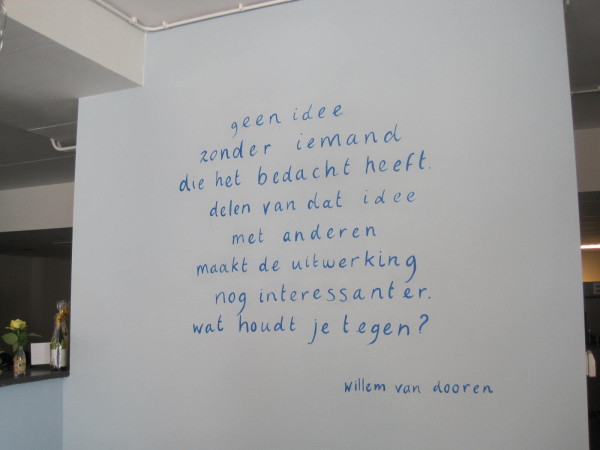 geen idee
zonder iemand
die het bedacht heeft.
delen van dat idee
met anderen
maakt de uitwerking
nog interessanter.
wat houdt je tegen?
willem van dooren